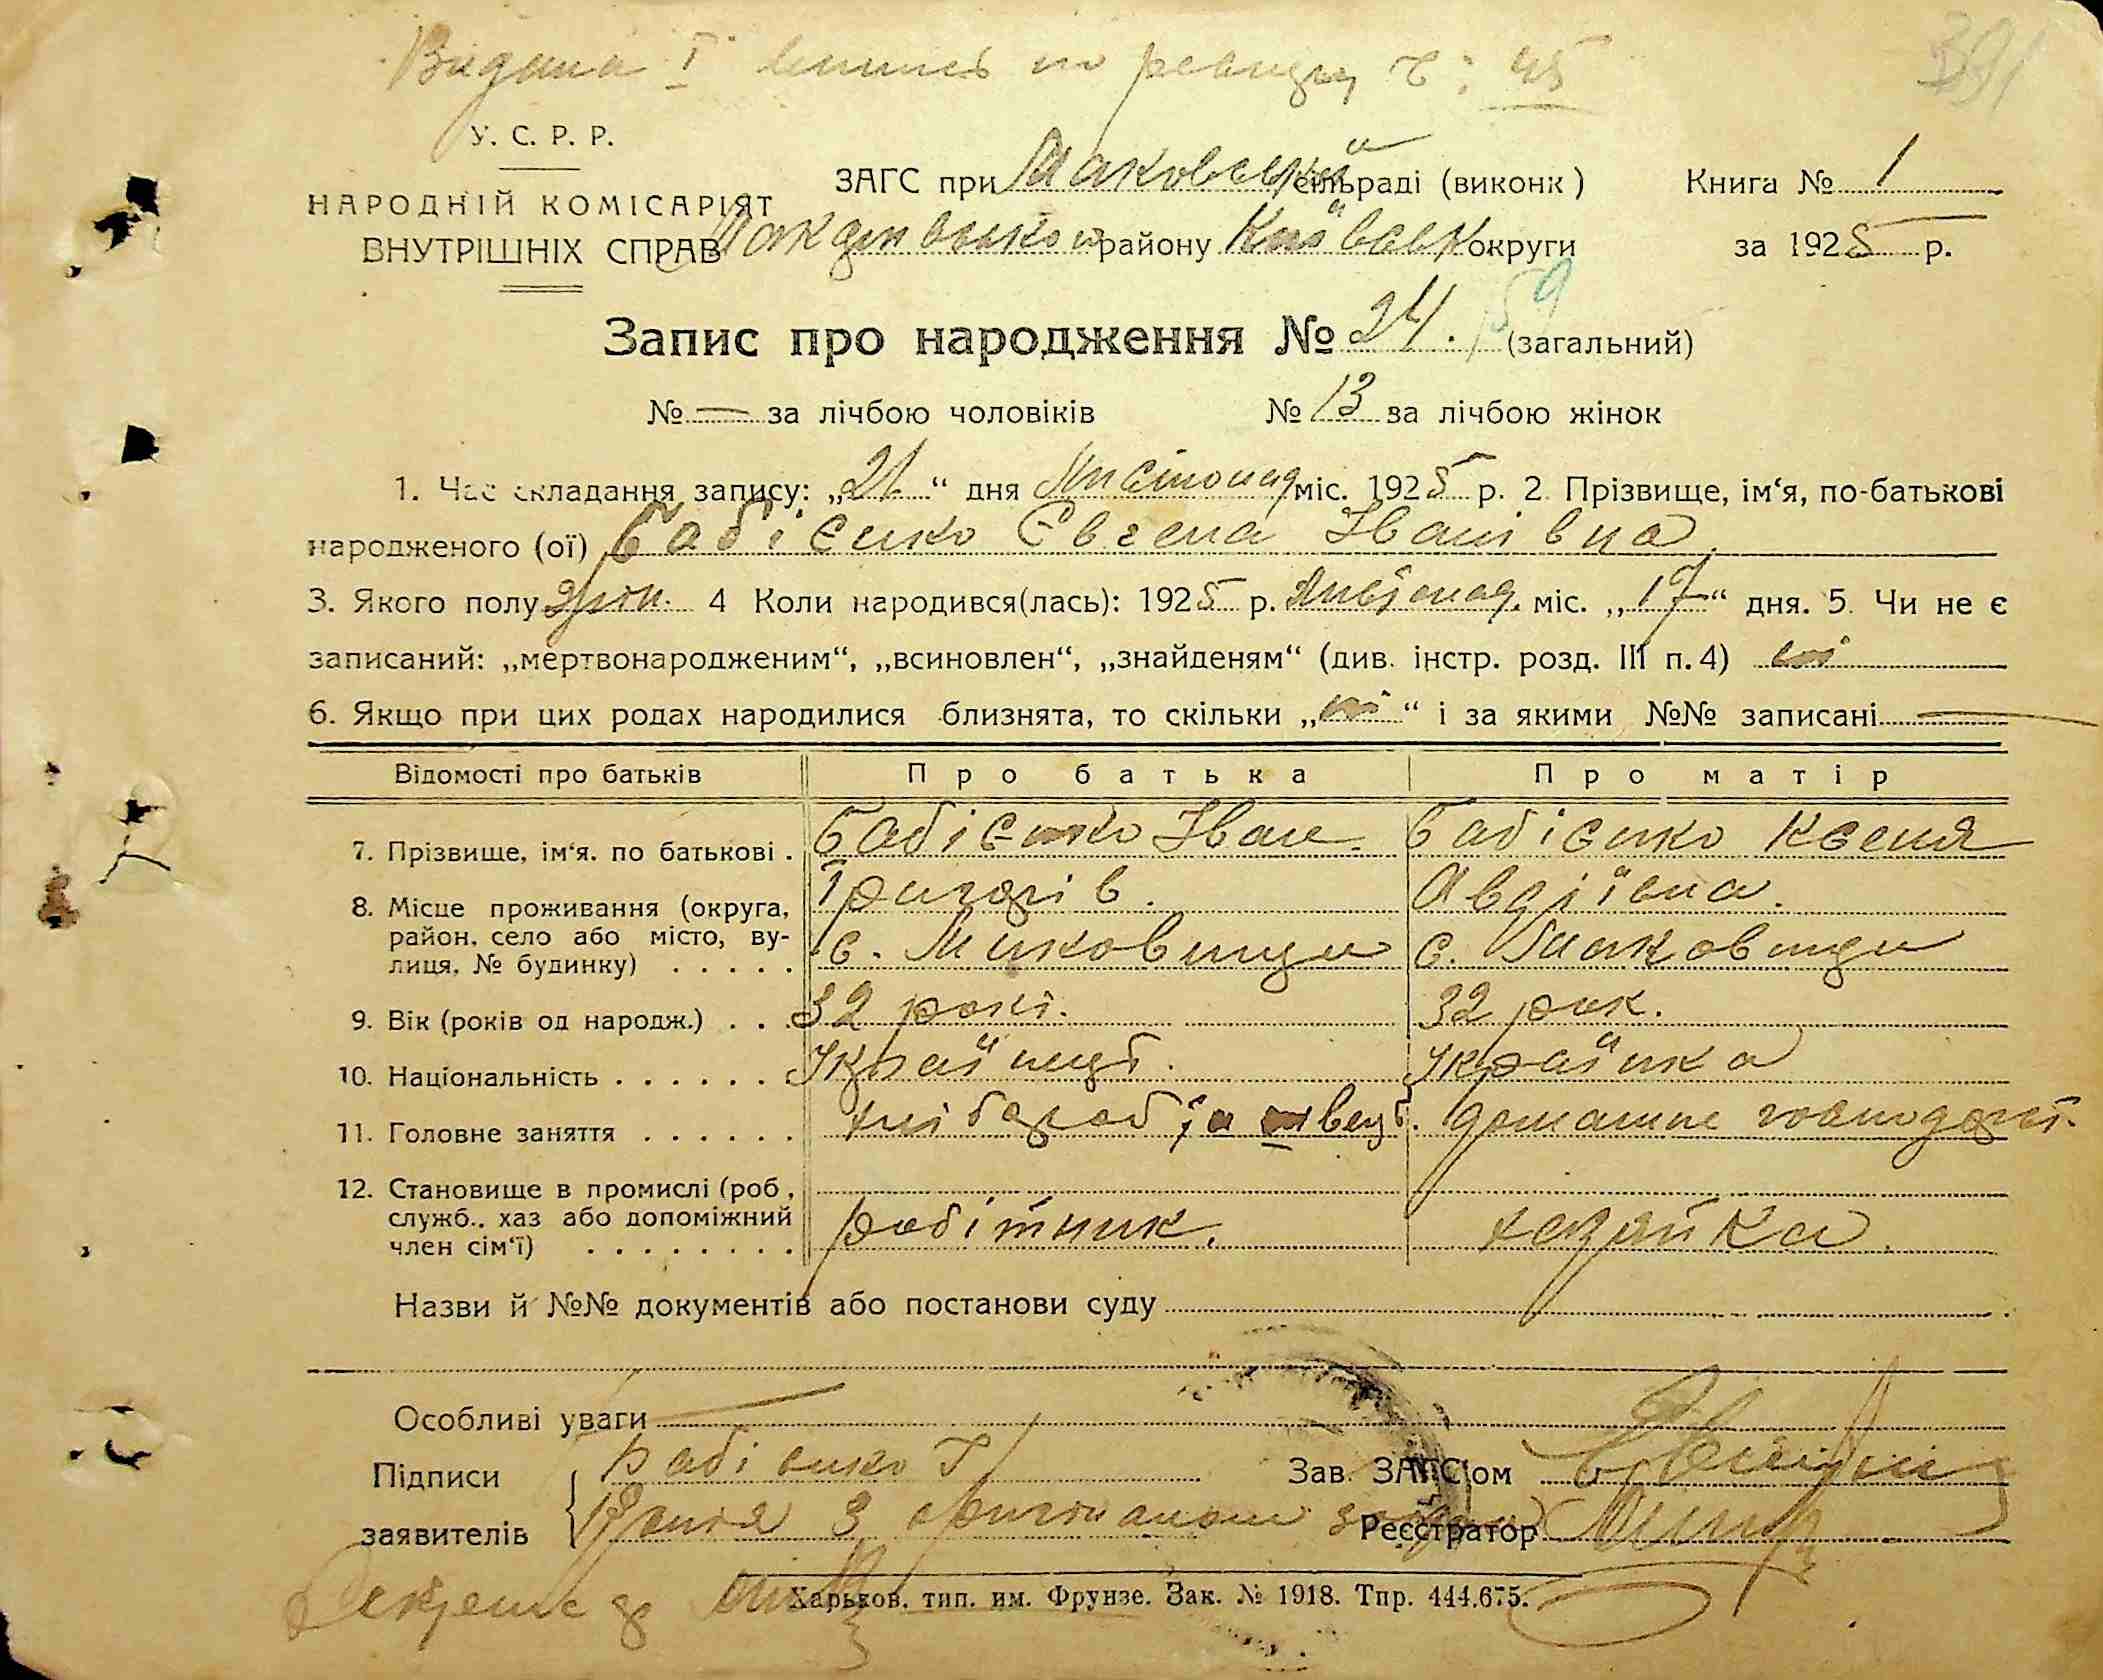 Видана I випись по реєстру Ч: 45
391
У. С. Р. Р.
НАРОДНІЙ КОМІСАРІЯТ
ВНУТРІШНІХ СПРАВ
ЗАГС при Маковській сільраді (виконк)
району Київськ округи
Книга № 1
за 1925 р.
Запис про народження № 24. 59 (загальний)
№ — за лічбою чоловіків № 13 за лічбою жінок
1. Час складання запису: „21“ дня Листопад міс. 1925 р. 2 Прізвище, ім‘я, по-батькові
народженого (ої) Бабієнко Євгена Іванівна
3. Якого полу жін. 4 Коли народився(лась): 1925 р. Листопад. міс. „17“ дня. 5. Чи не є
записаний: „мертвонародженим“, „всиновлен“, „знайденям“ (див. інстр. розд. III п. 4) ні
6. Якщо при цих родах народилися близнята, то скільки „ні“ і за якими №№ записані —
Відомості про батьків Про батька Про матір
7. Прізвище, ім‘я. по батькові . Бабієнко Іван Бабієнко Ксеня
Григорів. Авдіївна.
8. Місце проживання (округа,
район, село або місто, ву-
лиця, № будинку) . . . . . с. Маковищи с. Маковищи
9. Вік (років од народж.) . . . 32 рокі. 32 рок.
10. Національність . . . . . . Українць. Українка
11. Головне заняття . . . . . . хлібороб та швець. домашне господарст.
12. Становище в промислі (роб,
служб.. хаз або допоміжний
член сім‘ї) . . . . . . . . робітник. хазяйка.
Назви й №№ документів або постанови суду
Особливі уваги —
Підписи Бабієнко І Зав. ЗАГС‘ом
заявителів Копія з оригіналом Реєстратор
Секретар
Харьков. тип. им. Фрунзе. Зак. № 1918. Тпр. 444.675.